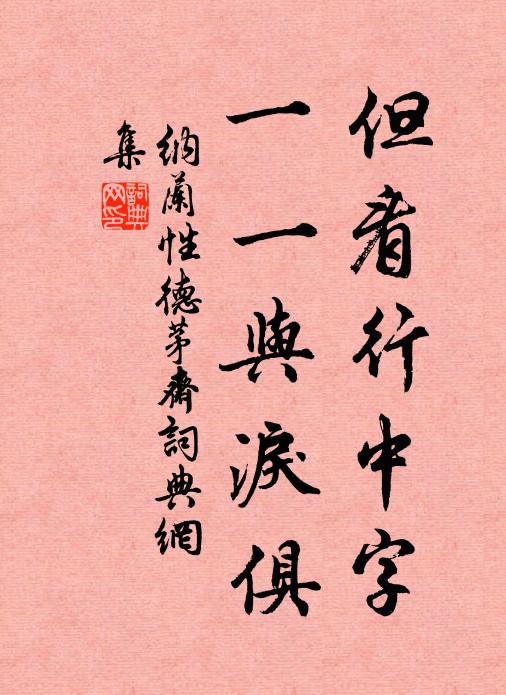 但看行中字
一一與淚俱
納蘭性德茅齋詞典網
集
詞典
网印